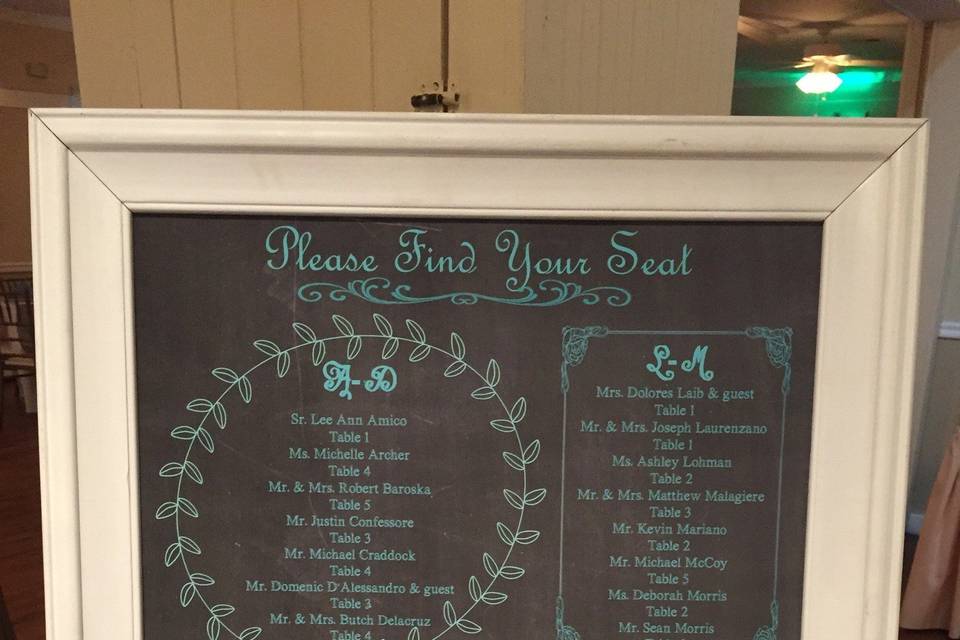 Please Find Your Seat
A-D
Sr. Lee Ann Amico
Table 1
Ms. Michelle Archer
Table 4
Mr. & Mrs. Robert Baroska
Table 5
Mr. Justin Confessore
Table 3
Mr. Michael Craddock
Table 4
Mr. Domenic D'Alessandro & guest
Table 3
Mr. & Mrs. Butch Delacruz
Table 4
L-M
Mrs. Dolores Laib & guest
Table 1
Mr. & Mrs. Joseph Laurenzano
Table 1
Ms. Ashley Lohman
Table 2
Mr. & Mrs. Matthew Malagiere
Table 3
Mr. Kevin Mariano
Table 2
Mr. Michael McCoy
Table 5
Ms. Deborah Morris
Table 2
Mr. Sean Morris